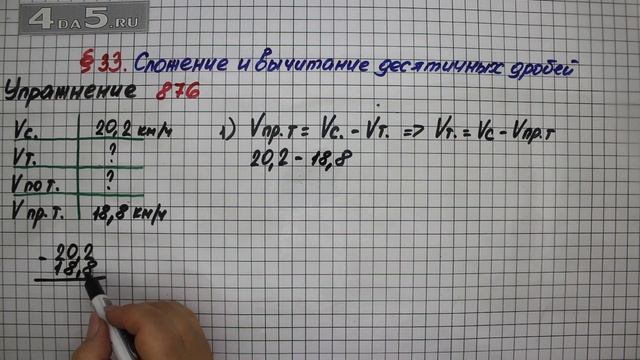 4DA5.RU
§33. Сложение и вычитание десятичных дробей
Упражнение 876
Vс. 20,2 км/ч
Vт. ?
Vпо т. ?
Vпр. т. 18,8 км/ч
1) Vпр. т = Vс. - Vт. => Vт. = Vс - Vпр. т
20,2 - 18,8
- 20,2
18,8